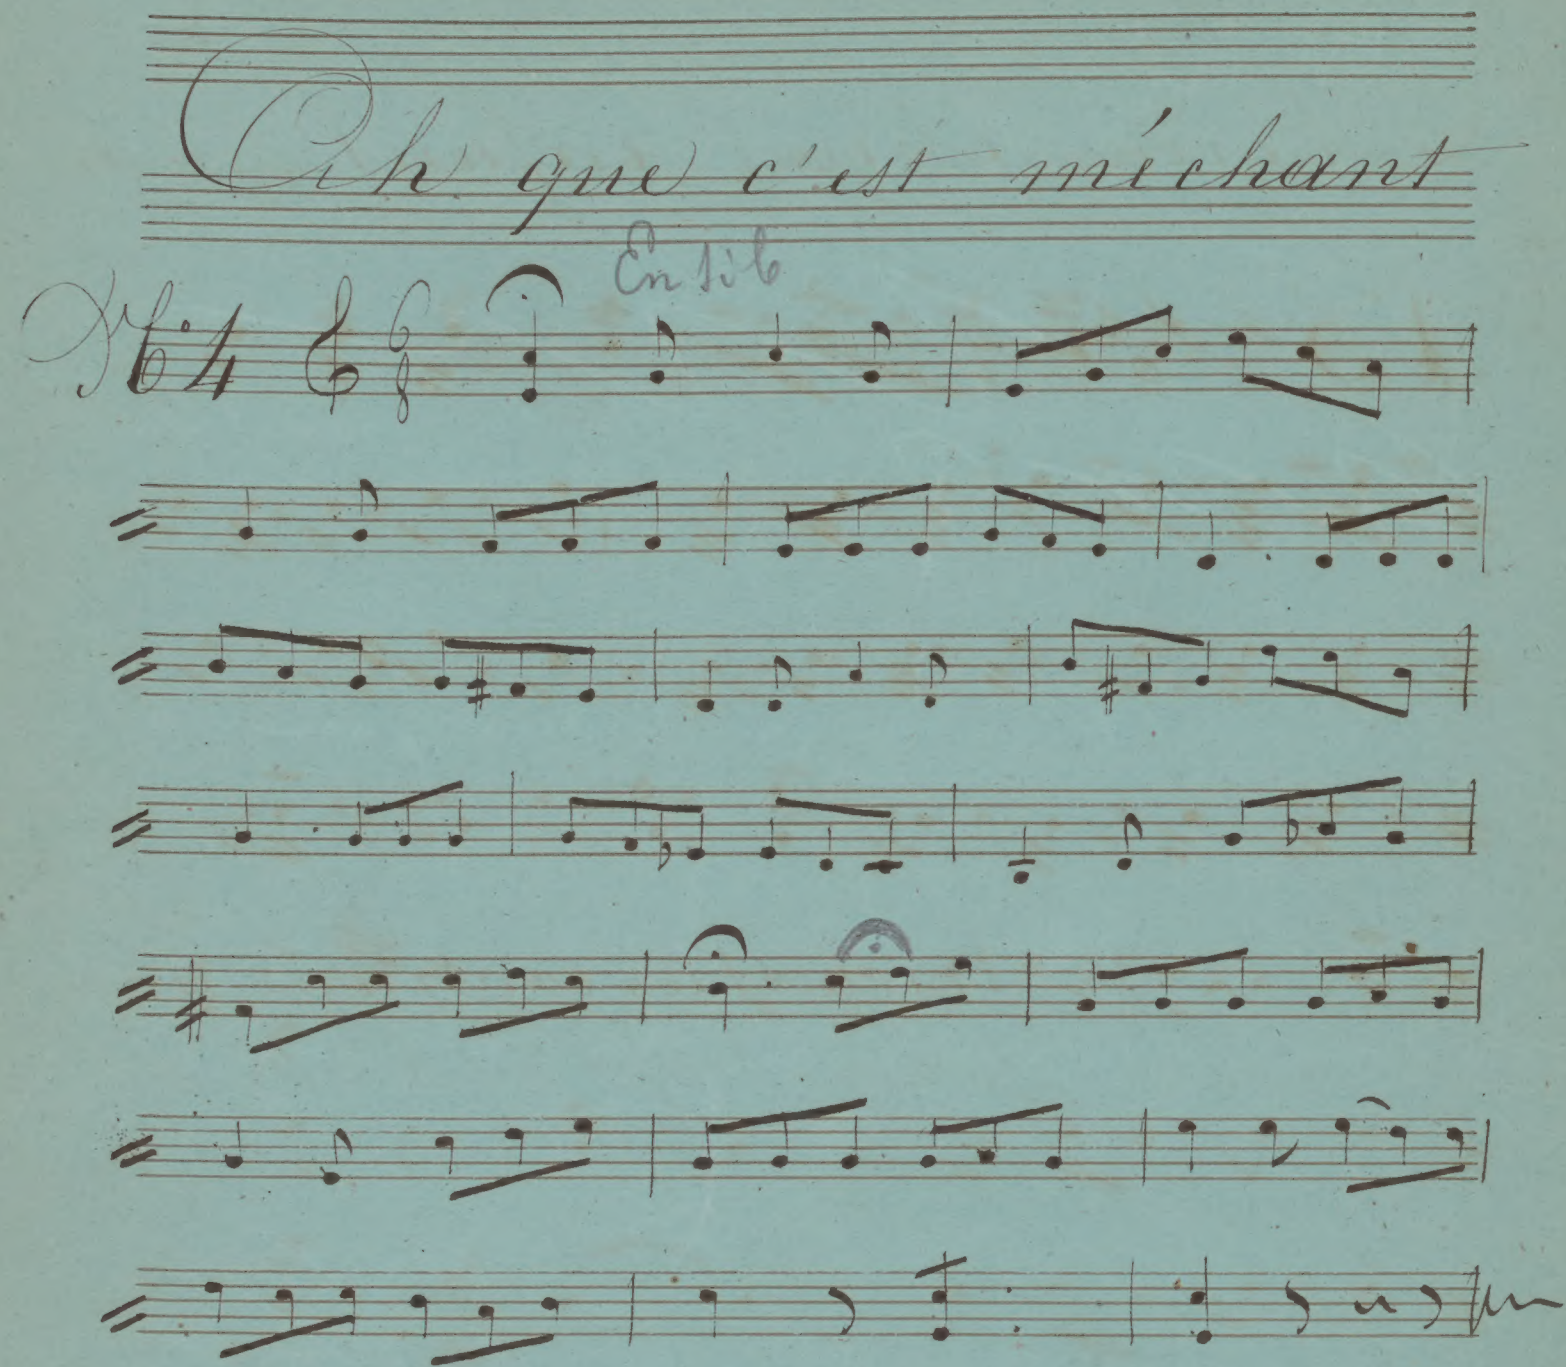 Ah que c'est méchant
En si b
N° 4 6/8